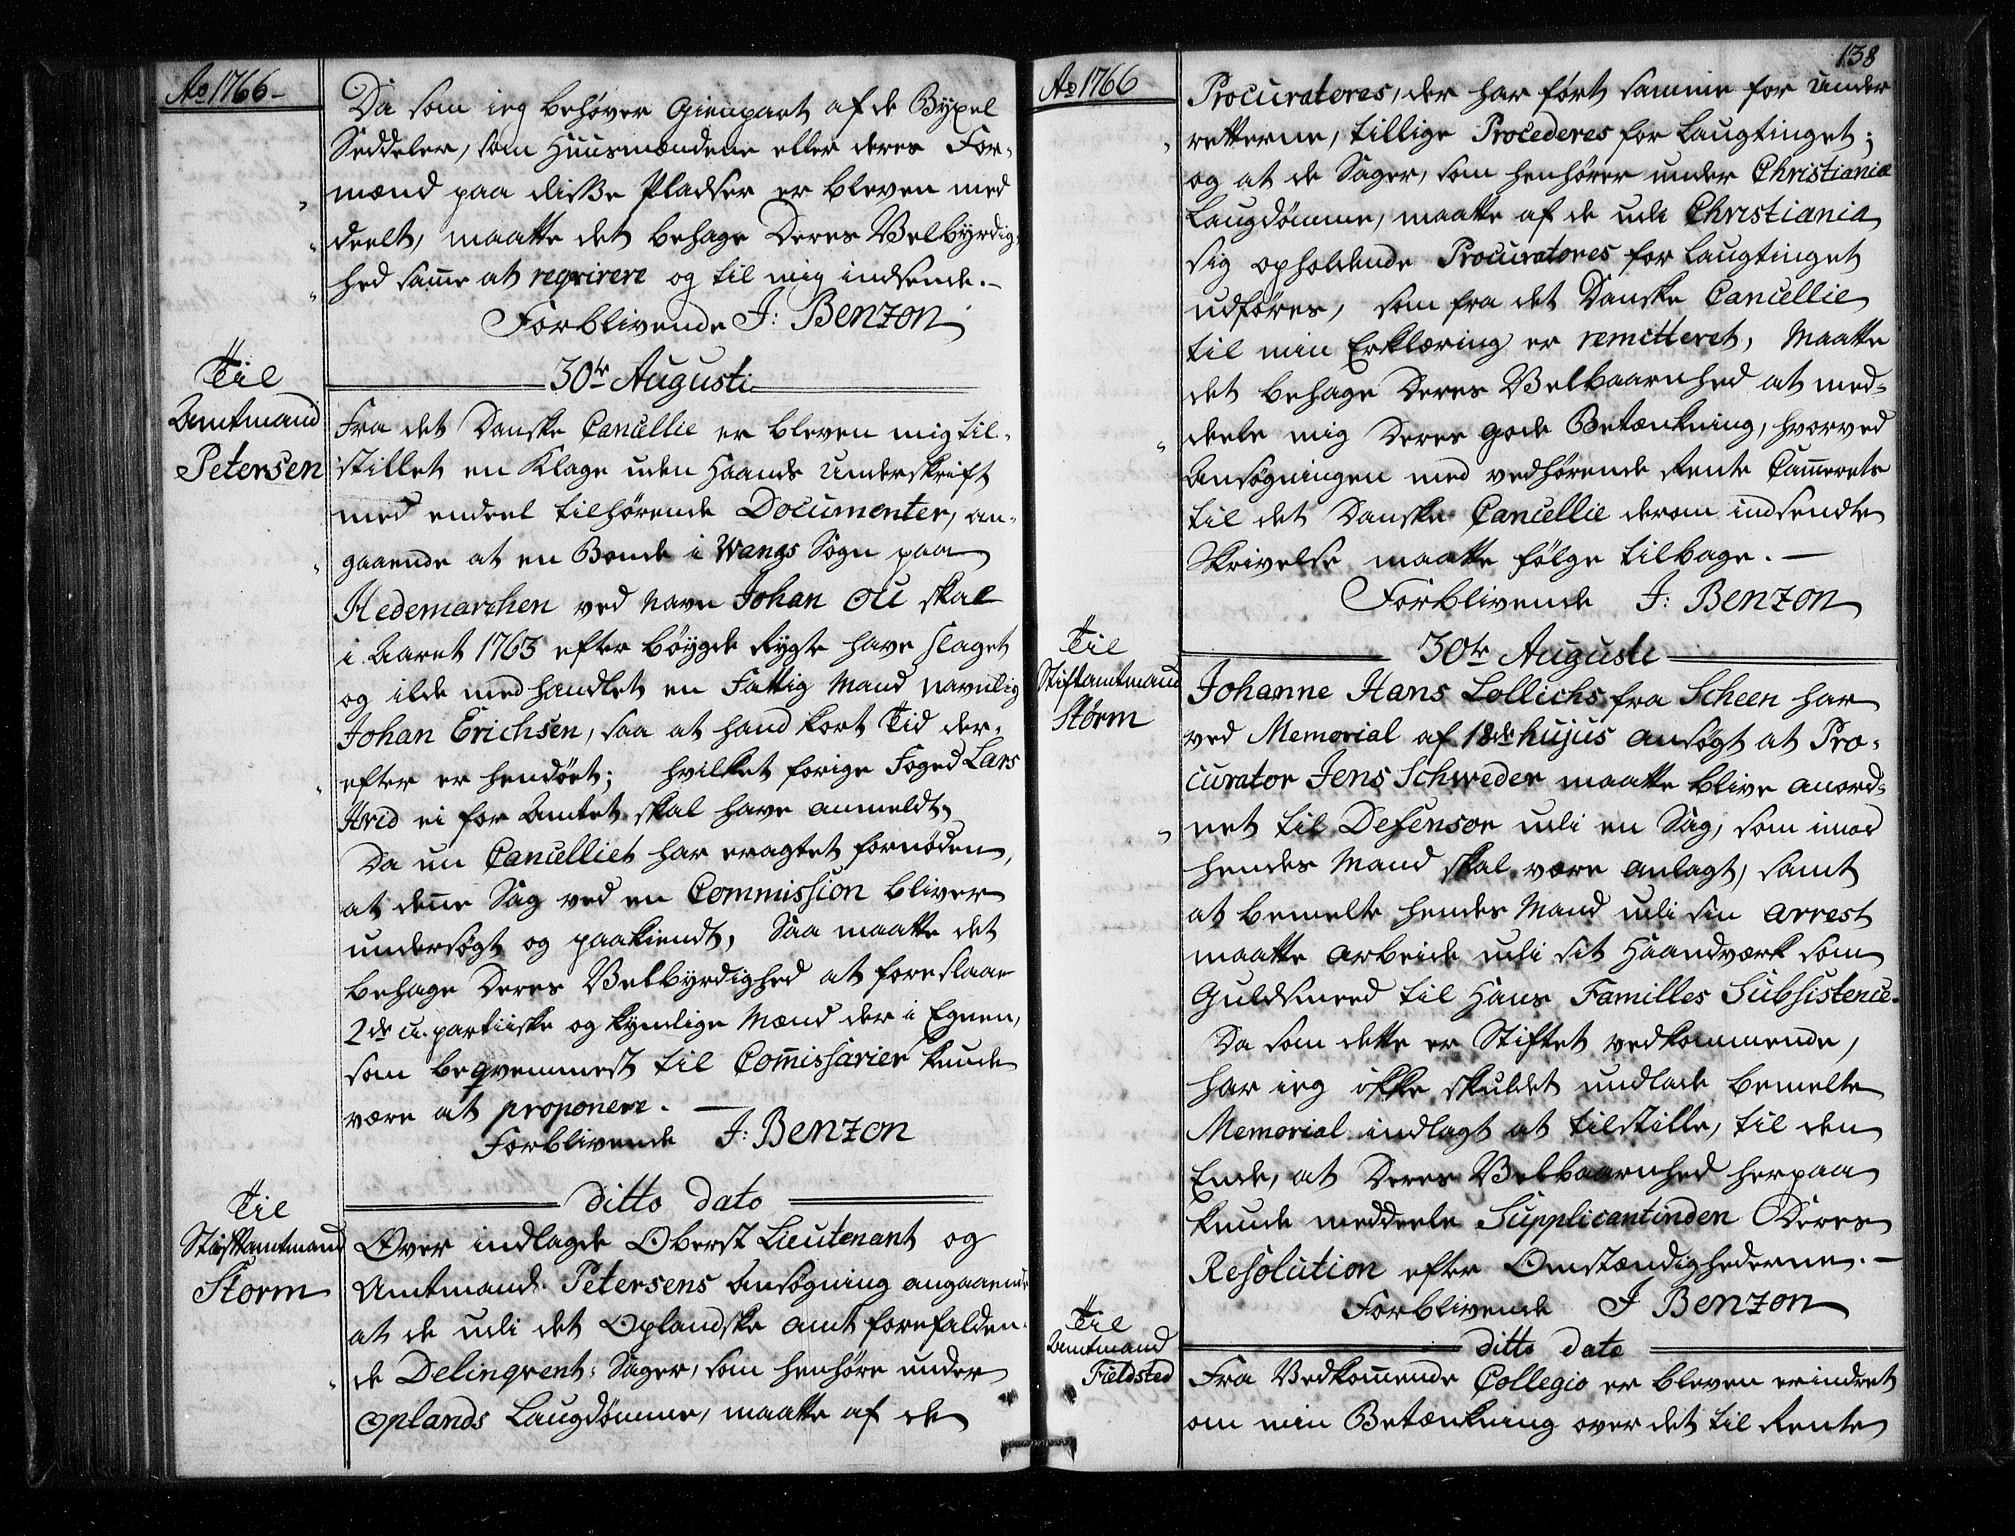 Ao 1766 –
Da som ieg behøver Gienpart af de Byxel
Seddeler, som Huusmændene eller deres For-
mænd paa disse Pladser er bleven med
deelt, maatte det behage Deres Velbyrdig-
hed samme at reqvirere og til mig indsende. –
Forblivende J: Benzon
30te Augusti
Til
Amtmand
Petersen
Fra det Danske Cancellie er bleven mig til-
stillet en Klage uden Haands Underskrift
med endeel tilhørende Documenter, an-
gaaende at en Bonde i Wangs Sogn paa
Hedemarchen ved Navn Johan Ou skal
i Aaret 1763 efter bøygde Rygte have slaget
og ilde medhandlet en Fattig Mand navnlig
Johan Erichsen, saa at hand kort Tid der-
efter er hendöet; hvilket forige Foged Lars
Hvid ei for Amtet skal have anmeldt,
Da nu Cancelliet har eragtet fornøden,
at denne Sag ved en Commission bliver
undersøgt og paakiendt, Saa maatte det
behage Deres Velbyrdighed at foreslaae
2de u-partiiske og kyndige Mænd der i Egnen,
som beqvemmest til Commissarier kunde
være at proponere. –
Forblivende J: Benzon
ditto dato
Til
Stiftamtmand
Storm
Over indlagde Oberst Lieutenant og
Amtmand Petersens Ansøgning angaaende
at de udi det Oplandske Amt forefalden-
de Delinqvent-Sager, som henhøre under
Oplands Laugdømme, maatte af de
138
Ao 1766
Procuratores, der har ført samme for Under
retterne, tillige Procederes for Laugtinget;
og at de Sager, som henhører under Christianiæ
Laugdømme, maatte af de udi Christiania
sig opholdende Procuratores for Laugtinget
udføres, som fra det Danske Cancellie
til min Erklæring er remitteret, Maatte
det behage Deres Velbaarnhed at med-
deele mig Deres gode Betænkning, hvorved
Ansøgningen med vedhørende Rente Cammerets
til det Danske Cancellie derom indsendte
Skrivelse maatte følge tilbage. –
Forblivende J: Benzon
30te Augusti
Til
Stiftamtmand
Störm
Johanne Hans Lollichs fra Scheen har
ved Memorial af 18de hujus ansøgt at Pro-
curator Jens Schweder maatte blive anord-
net til Defensor udi en Sag, som imod
hendes Mand skal være anlagt, samt
at bemelte hendes Mand udi sin Arrest
maatte arbeide udi sit Haandværk som
Guldsmed til Hans Familles Subsistence.
Da som dette er Stiftet vedkommende,
har ieg ikke skuldet undlade bemelte
Memorial indlagt at tilstille, til den
Ende, at Deres Velbaarnhed herpaa
kunde meddeele Supplicantinden Deres
Resolution efter Omstændighederne. –
Forblivende J Benzon
ditto dato
Til
Amtmand
Fieldsted
Fra Vedkommende Collegio er bleven erindret
om min Betænkning over det til Rente